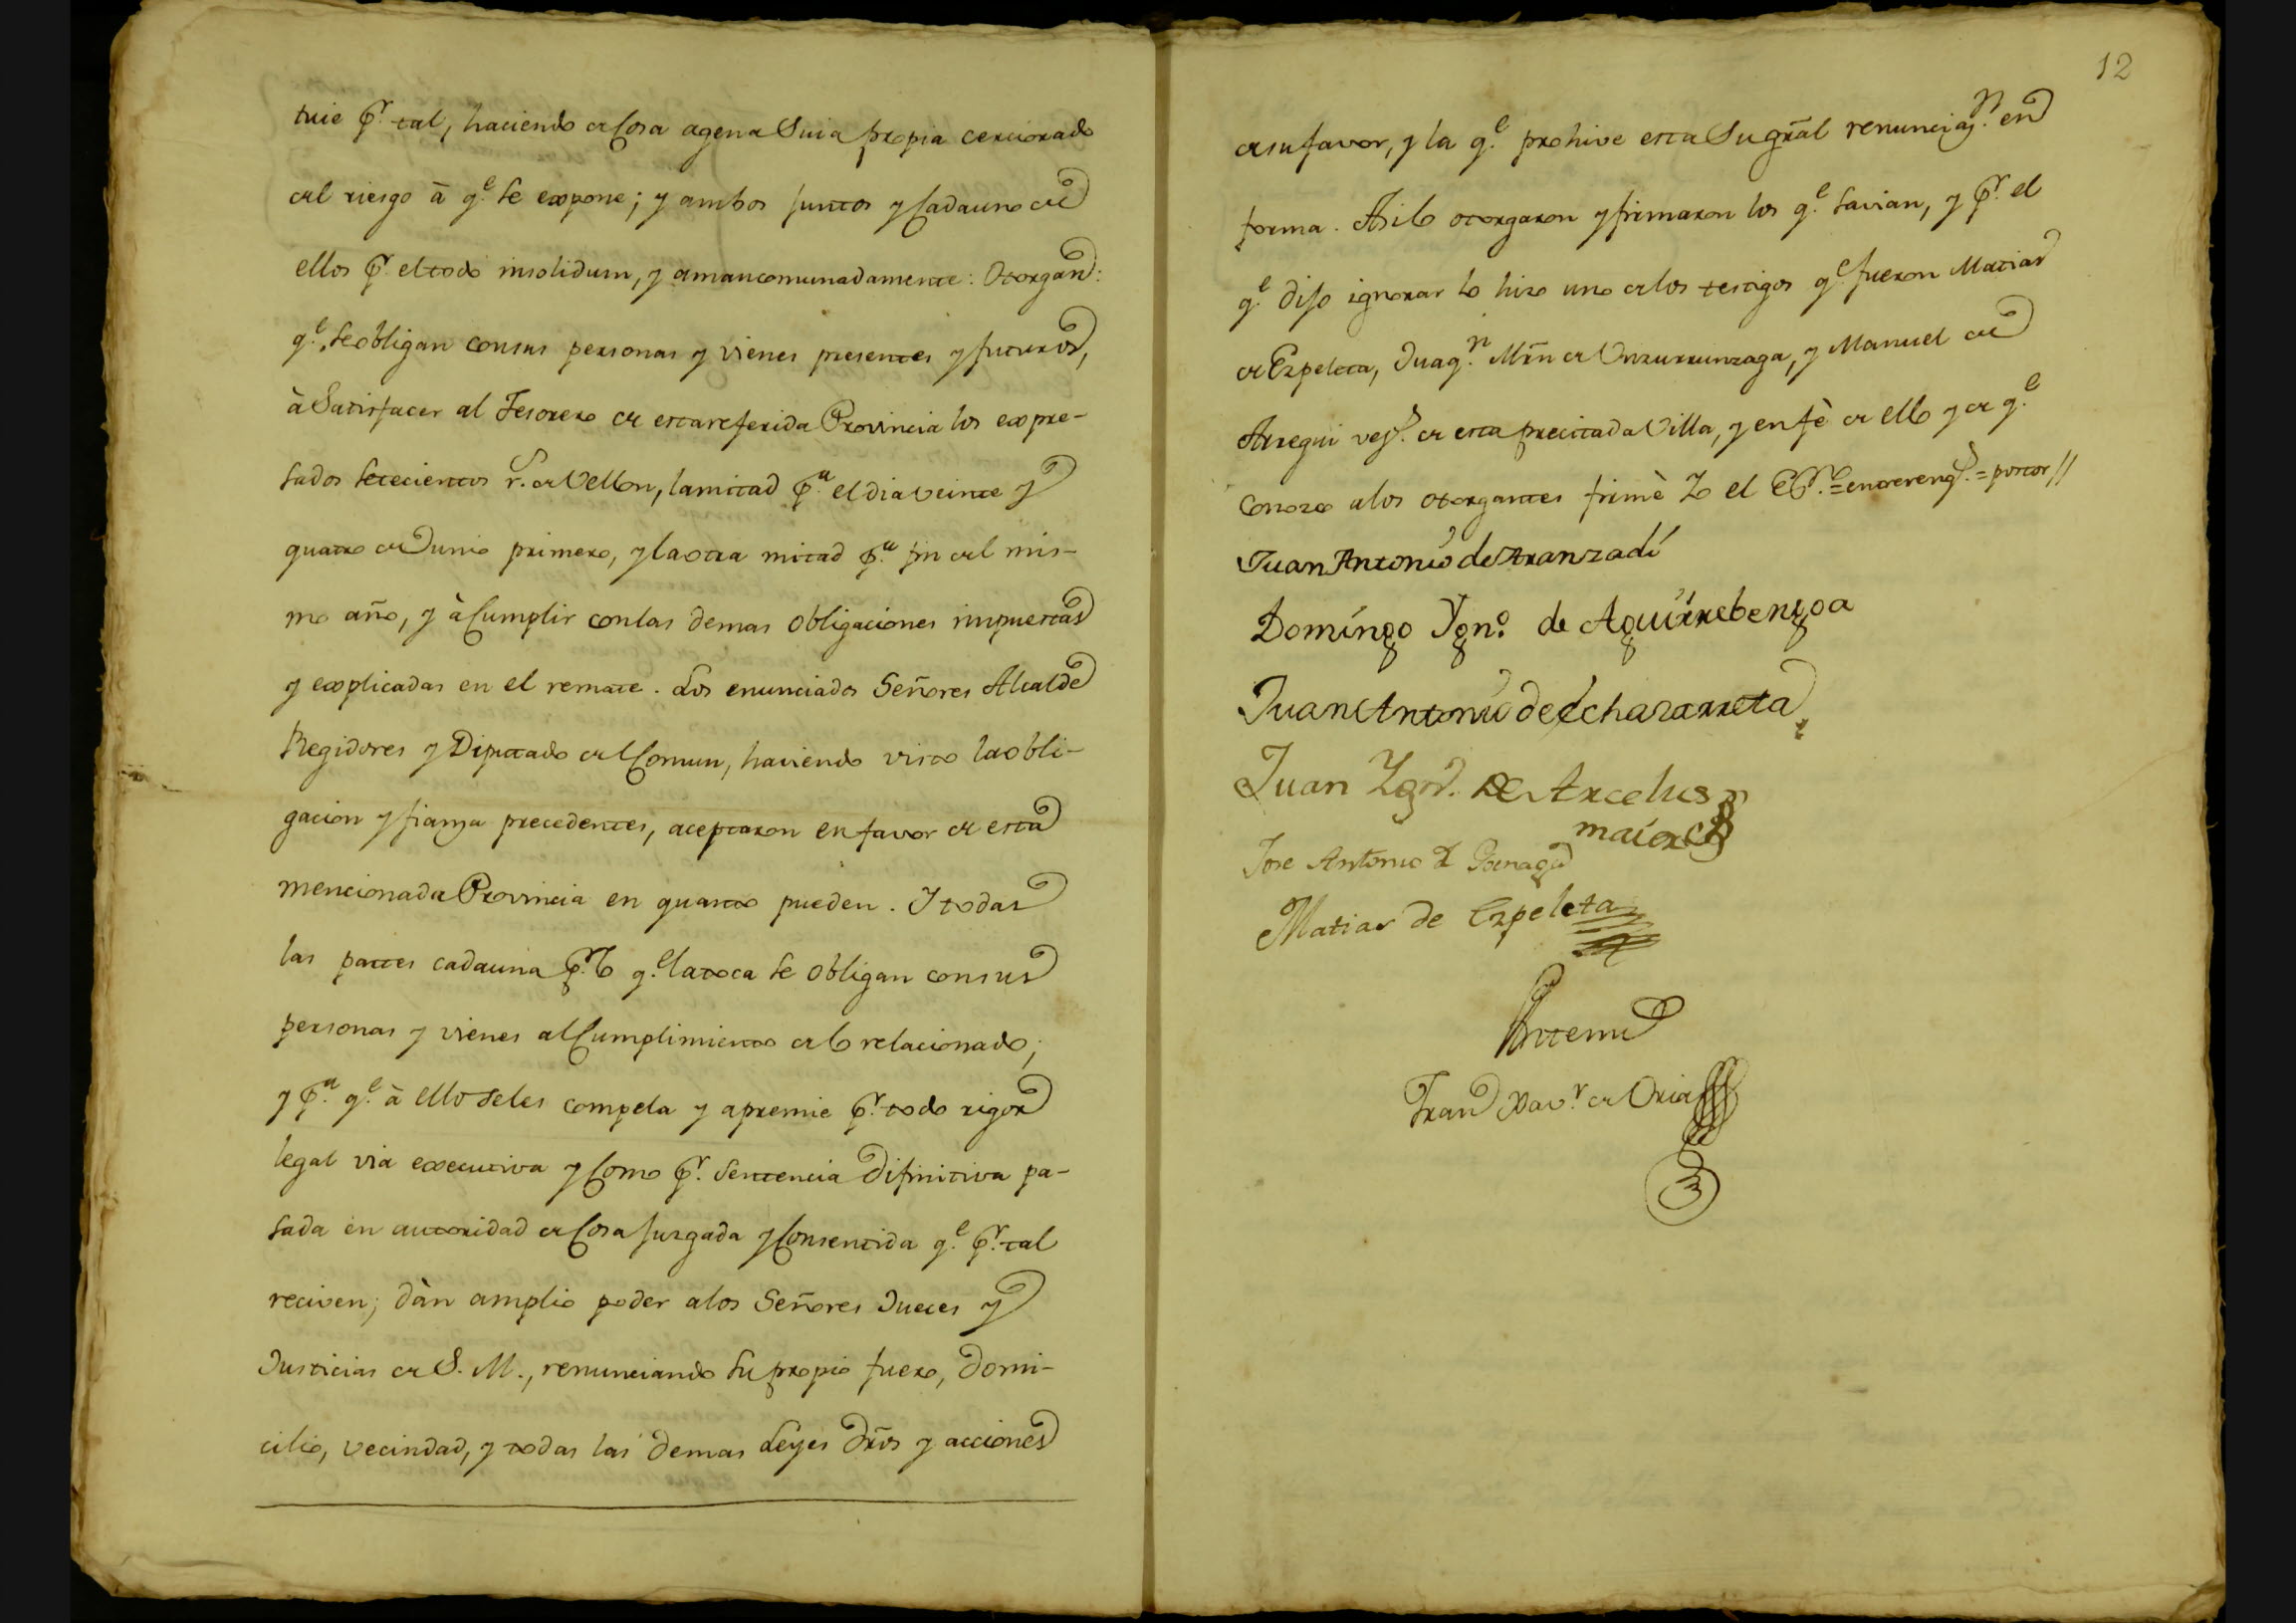 tuie p.r tal, haciendo de Cosa agena Suia propia cerciorado
del riesgo à q.e se expone; y ambos juntos y Cadauno de
ellos p.r el todo insolidum, y amancomunadamente: Otorgan:
q.e se obligan consus personas y vienes presentes y futuros,
à Satisfacer al Tesorero de esta referida Provincia los expre-
sados setecientos r.s de Vellon, la mitad p.a el dia veinte y
quatro de Junio primero, y la otra mitad p.a fin del mis-
mo año, y à Cumplir con las demas obligaciones impuestas
y explicadas en el remate. Los enunciados Señores Alcalde
Regidores y Diputado del Comun, haviendo visto la obli-
gacion y fianza precedentes, aceptaron en favor de esta
mencionada Provincia en quanto pueden. Y todas
las partes cadauna p.r lo q.e la toca se obligan consus
personas y vienes al Cumplimiento de lo relacionado;
y p.a q.e à ello seles compela y apremie p.r todo rigor
legal via executiva y Como p.r Sentencia difinitiva pa-
sada en autoridad de Cosa Juzgada y Consentida q.e p.r tal
reciven; dàn amplio poder a los Señores Jueces y
Justicias de S. M., renunciando su propio fuero, domi-
cilio, vecindad, y todas las demas Leyes dros y acciones
12
de su favor, y la q.e prohive esta Su gral renunciaz.n en
forma. Asilo otorgaron y firmaron los q.e savian, y p.r el
q.e dijo ignorar lo hizo uno de los testigos q.e fueron Matias
de Ezpeleta, Juaq.n Mrn de Unzurrunzaga, y Manuel de
Arregui vez.s de esta precitada Villa, y en fè de ello y de q.e
Conozco a los otorgantes firmè Yo el Es.no = entrereng.s = por tor //
Juan Antonio de Aranzadi
Domingo Ygn.o de Aguirrebengoa
Juan Antonio de Echazarreta
Juan Ygn.o de Arcelus
maior
Jose Antonio de Goenaga
Matias de Ezpeleta
Antemi
Fran.co Xav.r de Oria